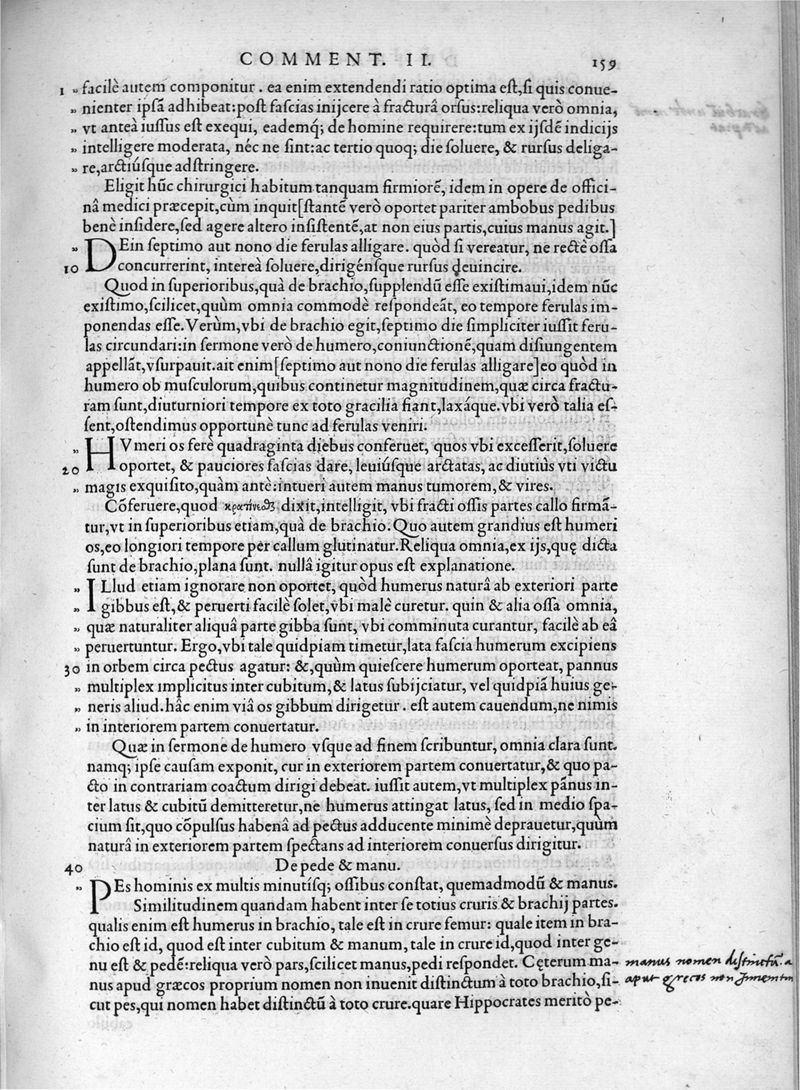 COMMENT. II. 159
1 „ facilè autem componitur. ea enim extendendi ratio optima est, si quis conue-
„ nienter ipsã adhibeat: post fascias inijcere à fracturâ orsus: reliqua verò omnia,
„ vt anteà iussus est exequi, eademq́; de homine requirere: tum ex ijsdẽ indicijs
„ intelligere moderata, néc ne sint: ac tertio quoq; die soluere, & rursus deliga-
„ re, arctiúsque adstringere.
Eligit hũc chirurgici habitum tanquam firmiorẽ, idem in opere de offici-
nâ medici præcepit, cùm inquit [stantẽ verò oportet pariter ambobus pedibus
benè insidere, sed agere altero insistentẽ, at non eius partis, cuius manus agit.]
„ DEin septimo aut nono die ferulas alligare. quòd si vereatur, ne rectè ossa
10 concurrerint, intereà soluere, dirigénsque rursus deuincire.
Quod in superioribus, quà de brachio, supplendũ esse existimaui, idem nũc
existimo, scilicet, quùm omnia commodè respondeãt, eo tempore ferulas im-
ponendas esse. Verùm, vbi de brachio egit, septimo die simpliciter iussit feru-
las circundari: in sermone verò de humero, coniunctionẽ, quam disiungentem
appellãt, vsurpauit. ait enim [septimo aut nono die ferulas alligare] eo quòd in
humero ob musculorum, quibus continetur magnitudinem, quæ circa fractu-
ram sunt, diuturniori tempore ex toto gracilia fiant, laxáque. vbi verò talia es-
sent, ostendimus opportunè tunc ad ferulas veniri.
„ HVmeri os ferè quadraginta diebus conferuet, quos vbi excesserit, soluere
20 oportet, & pauciores fascias dare, leuiúsque arctatas, ac diutiùs vti victu
„ magis exquisito, quàm antè: intueri autem manus tumorem, & vires.
Cõferuere, quod dixit, intelligit, vbi fracti ossis partes callo firmã-
tur, vt in superioribus etiam, quà de brachio. Quo autem grandius est humeri
os, eo longiori tempore per callum glutinatur. Reliqua omnia, ex ijs, quę dicta
sunt de brachio, plana sunt. nullâ igitur opus est explanatione.
„ ILlud etiam ignorare non oportet, quòd humerus naturâ ab exteriori parte
„ gibbus est, & peruerti facilè solet, vbi malè curetur. quin & alia ossa omnia,
„ quæ naturaliter aliquâ parte gibba sunt, vbi comminuta curantur, facilè ab eâ
„ peruertuntur. Ergo, vbi tale quidpiam timetur, lata fascia humerum excipiens
30 in orbem circa pectus agatur: &, quùm quiescere humerum oporteat, pannus
„ multiplex implicitus inter cubitum, & latus subijciatur, vel quidpiã huius ge-
„ neris aliud. hâc enim viâ os gibbum dirigetur. est autem cauendum, ne nimis
„ in interiorem partem conuertatur.
Quæ in sermone de humero vsque ad finem scribuntur, omnia clara sunt.
namq; ipse causam exponit, cur in exteriorem partem conuertatur, & quo pa-
cto in contrariam coactum dirigi debeat. iussit autem, vt multiplex pãnus in-
ter latus & cubitũ demitteretur, ne humerus attingat latus, sed in medio spa-
cium sit, quo cõpulsus habenâ ad pectus adducente minimè deprauetur, quùm
naturâ in exteriorem partem spectans ad interiorem conuersus dirigitur.
40 De pede & manu.
„ PEs hominis ex multis minutísq; ossibus constat, quemadmodũ & manus.
Similitudinem quandam habent inter se totius cruris & brachij partes.
qualis enim est humerus in brachio, tale est in crure femur: quale item in bra-
chio est id, quod est inter cubitum & manum, tale in crure id, quod inter ge-
nu est & pedẽ: reliqua verò pars, scilicet manus, pedi respondet. Cęterum ma- manus nomen distinctũ a
nus apud græcos proprium nomen non inuenit distinctum à toto brachio, si- aput grecos non Inuenitur
cut pes, qui nomen habet distinctũ à toto crure. quare Hippocrates meritò pe-